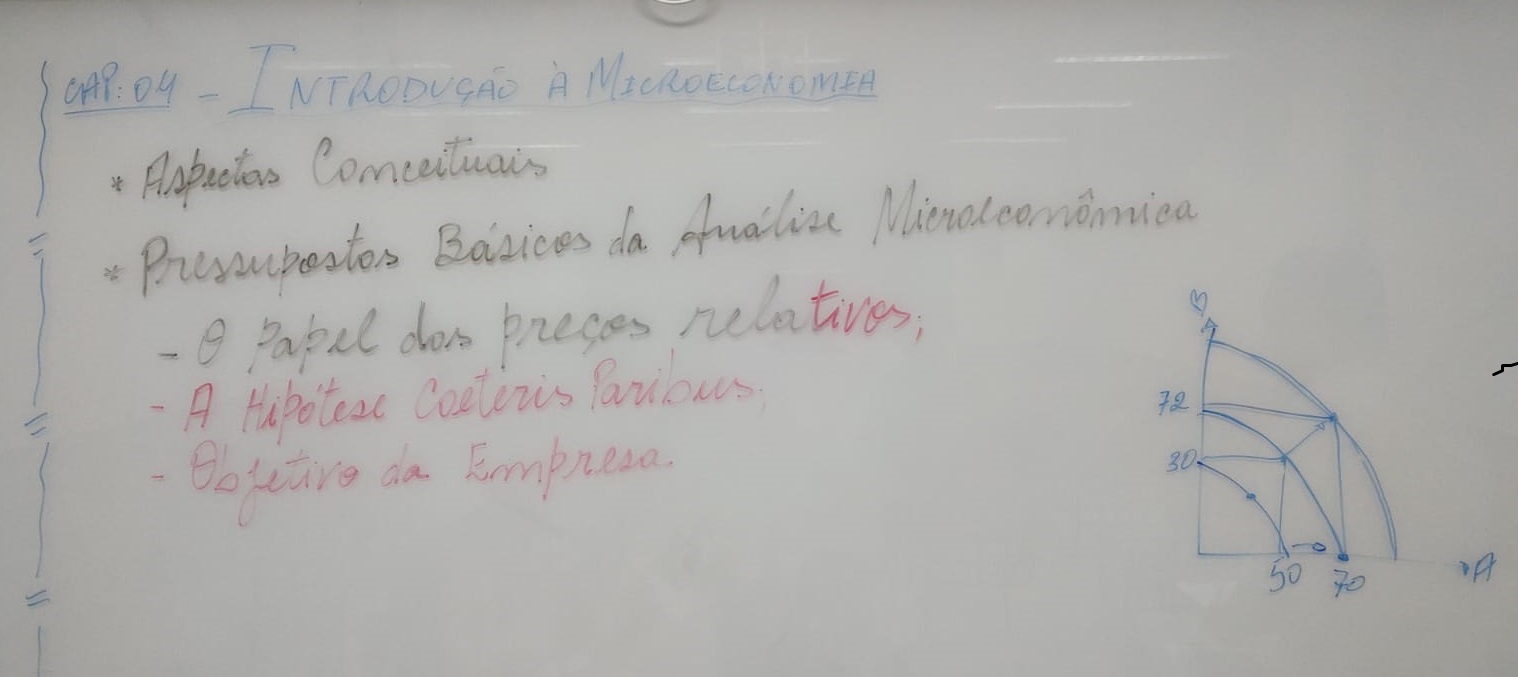 CAP: 04 - INTRODUÇÃO À MICROECONOMIA
* Aspectos Conceituais
* Pressupostos Básicos da Análise Microeconômica
- O Papel dos preços relativos;
- A Hipótese Coeteris Paribus;
- Objetivo da Empresa.
72
30
50
70
A